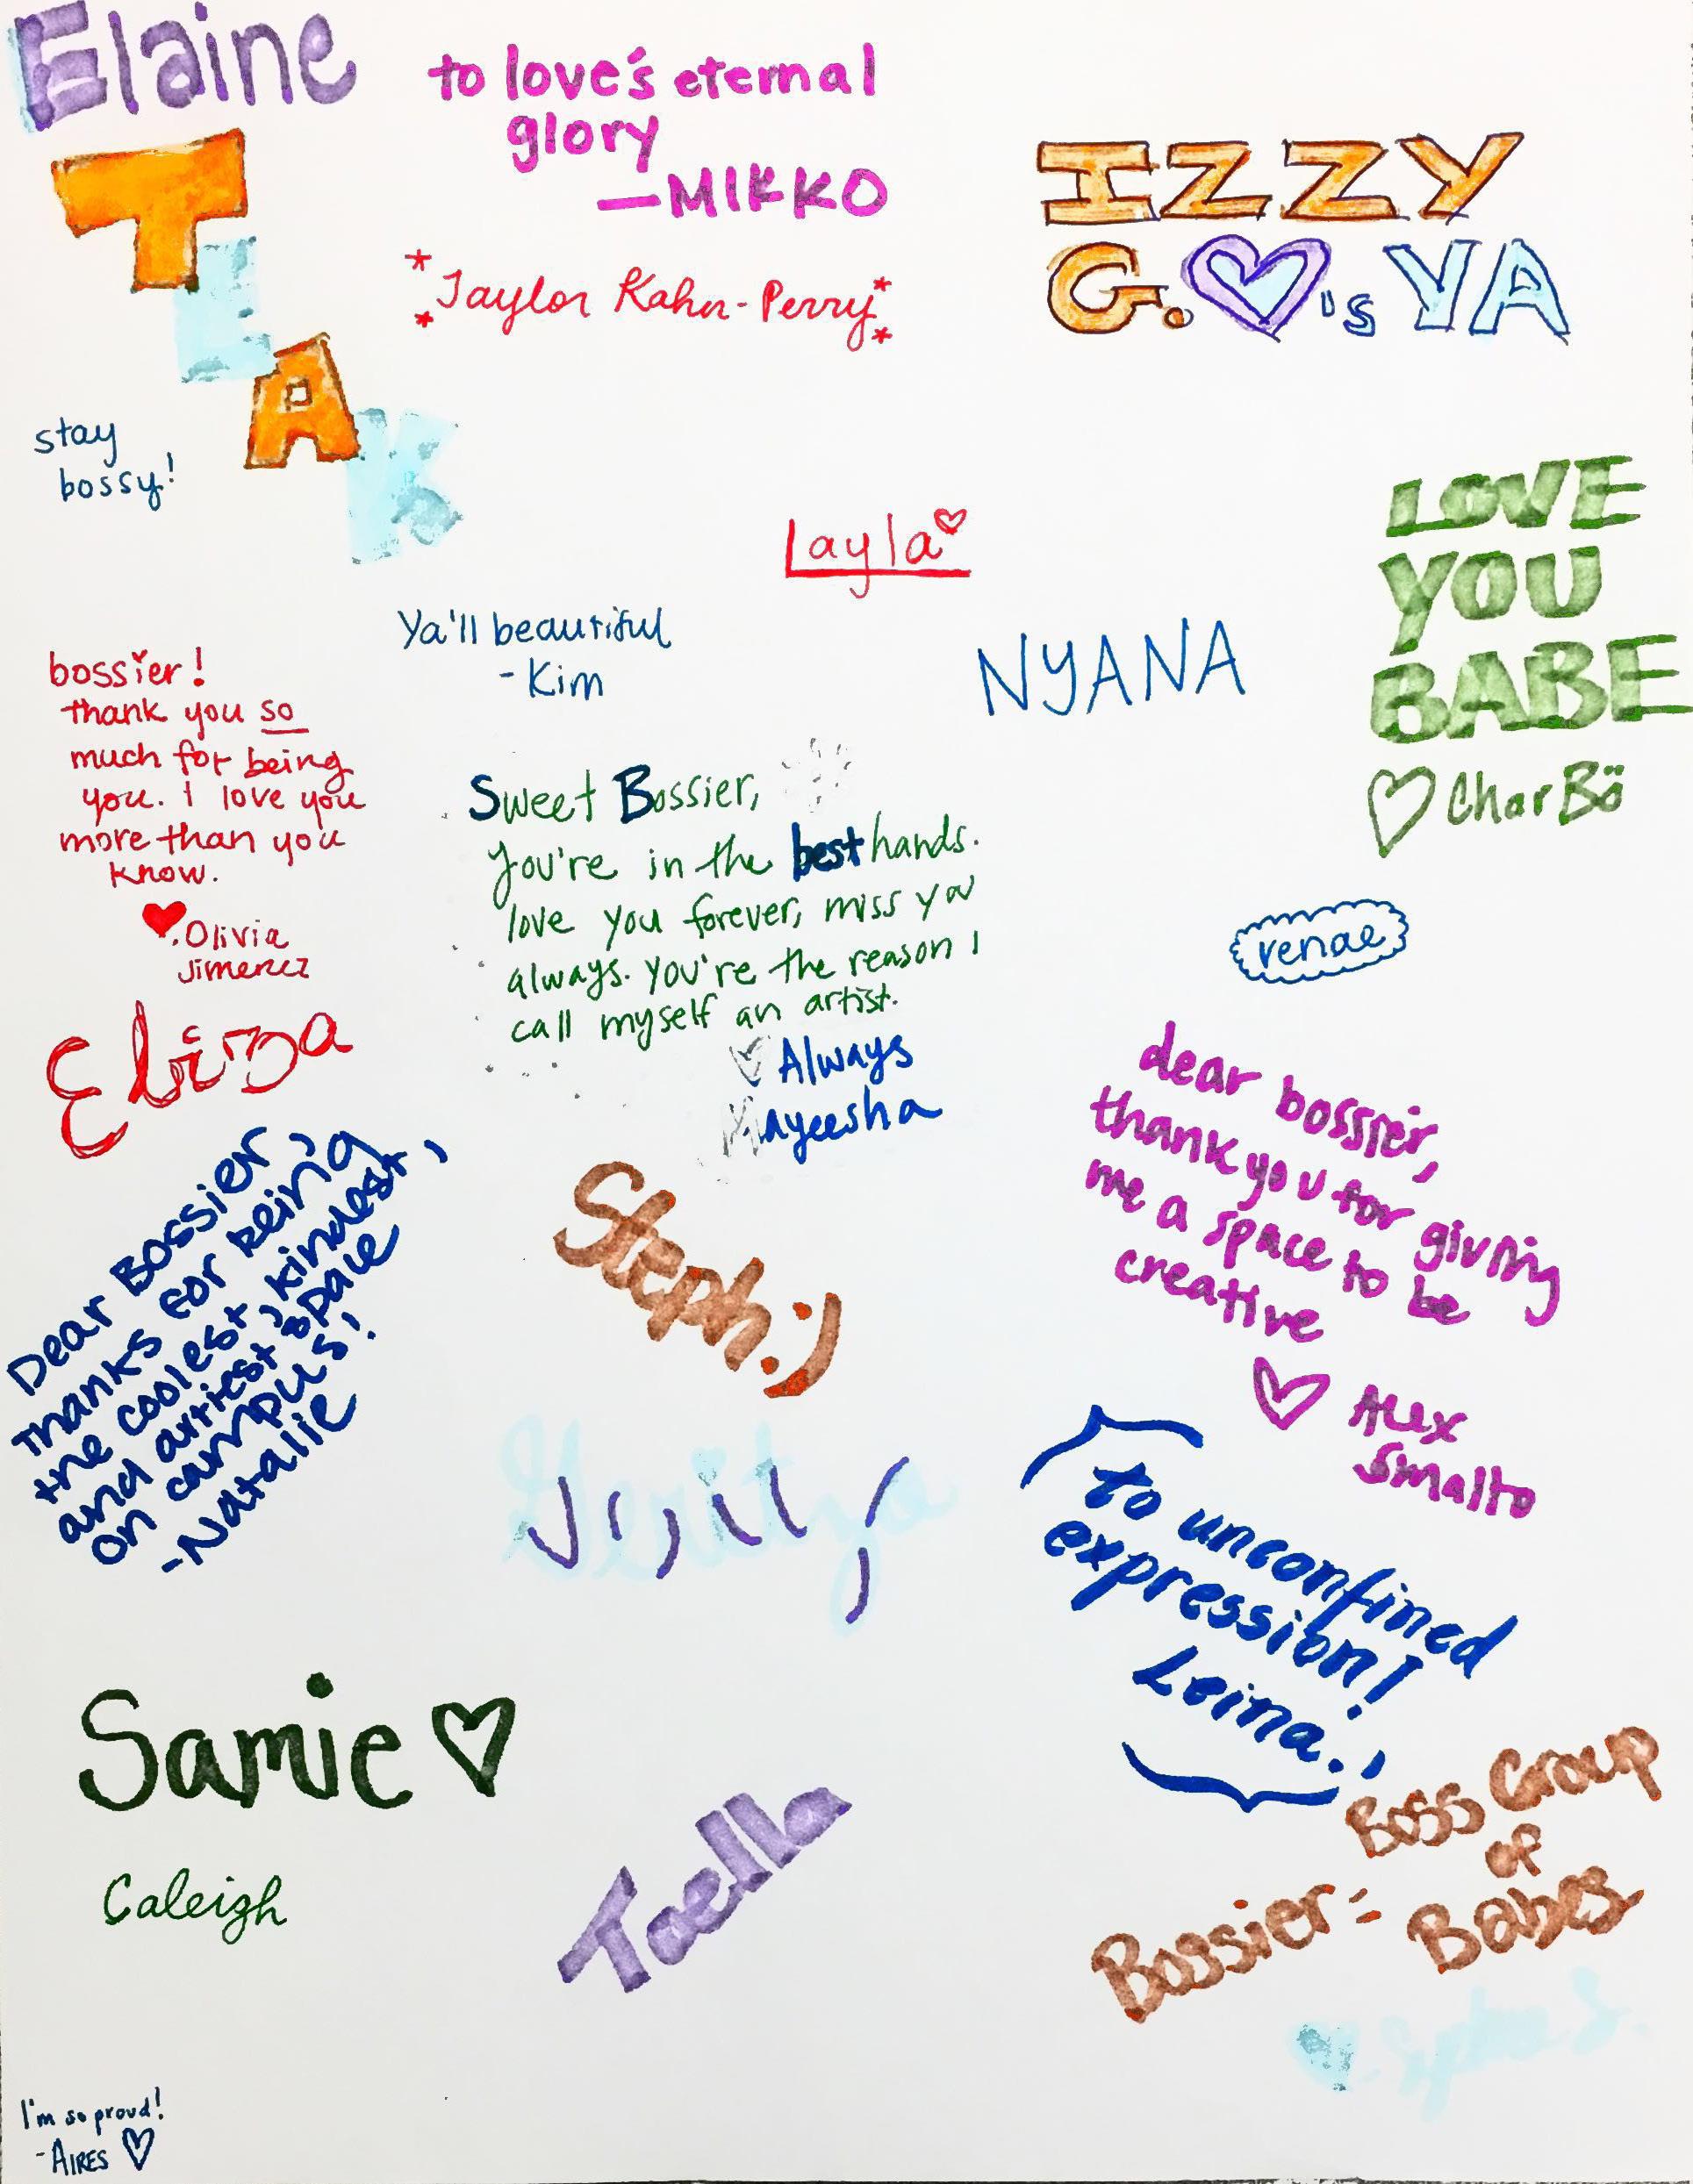 Elaine
TLAK
to love's eternal
glory
—MIKKO
*Taylor Kahn-Perry*
IZZY
G. ♡'s YA
stay
bossy!
Layla♡
LOVE
YOU
BABE
♡ Char Bö
Ya'll beautiful
- Kim
NYANA
bossier!
thank you so
much for being
you. i love you
more than you
know.
♥. Olivia
Jimenez
Sweet Bossier,
You're in the best hands.
love you forever, miss you
always. You're the reason I
call myself an artist.
♡ Always
Mayeesha
renae
Eliza
dear bossier,
thank you for giving
me a space to be
creative
♡ Alex
Smalto
Dear Bossier,
Thanks for being
the coolest, kindest,
and artiest space
on campus!
-Natalie
Steph :)
To unconfined
expression!
Leina.
Samie ♡
Caleigh
Taella
Boss Group
of
Bossier = Babes
I'm so proud!
- AIRES ♡